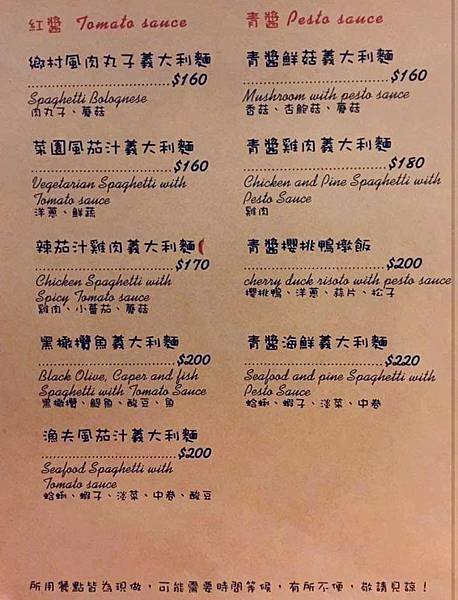 紅醬 Tomato sauce
鄉村風肉丸子義大利麵
$160
Spaghetti Bolognese
肉丸子、蘑菇
菜園風茄汁義大利麵
$160
Vegetarian Spaghetti with
Tomato sauce
洋蔥、鮮蔬
辣茄汁雞肉義大利麵
$170
Chicken Spaghetti with
Spicy Tomato sauce
雞肉、小番茄、蘑菇
黑橄欖魚義大利麵
$200
Black Olive, Caper and fish
Spaghetti with Tomato Sauce
黑橄欖、鯷魚、酸豆、魚
漁夫風茄汁義大利麵
$200
Seafood Spaghetti with
Tomato sauce
蛤蜊、蝦子、淡菜、中卷、酸豆
青醬 Pesto sauce
青醬鮮菇義大利麵
$160
Mushroom with pesto sauce
香菇、杏鮑菇、蘑菇
青醬雞肉義大利麵
$180
Chicken and Pine Spaghetti with
Pesto Sauce
雞肉
青醬櫻桃鴨燉飯
$200
cherry duck risoto with pesto sauce
櫻桃鴨、洋蔥、蒜片、松子
青醬海鮮義大利麵
$220
Seafood and pine Spaghetti with
Pesto Sauce
蛤蜊、蝦子、淡菜、中卷
所用餐點皆為現做，可能需要時間等候，有所不便，敬請見諒！